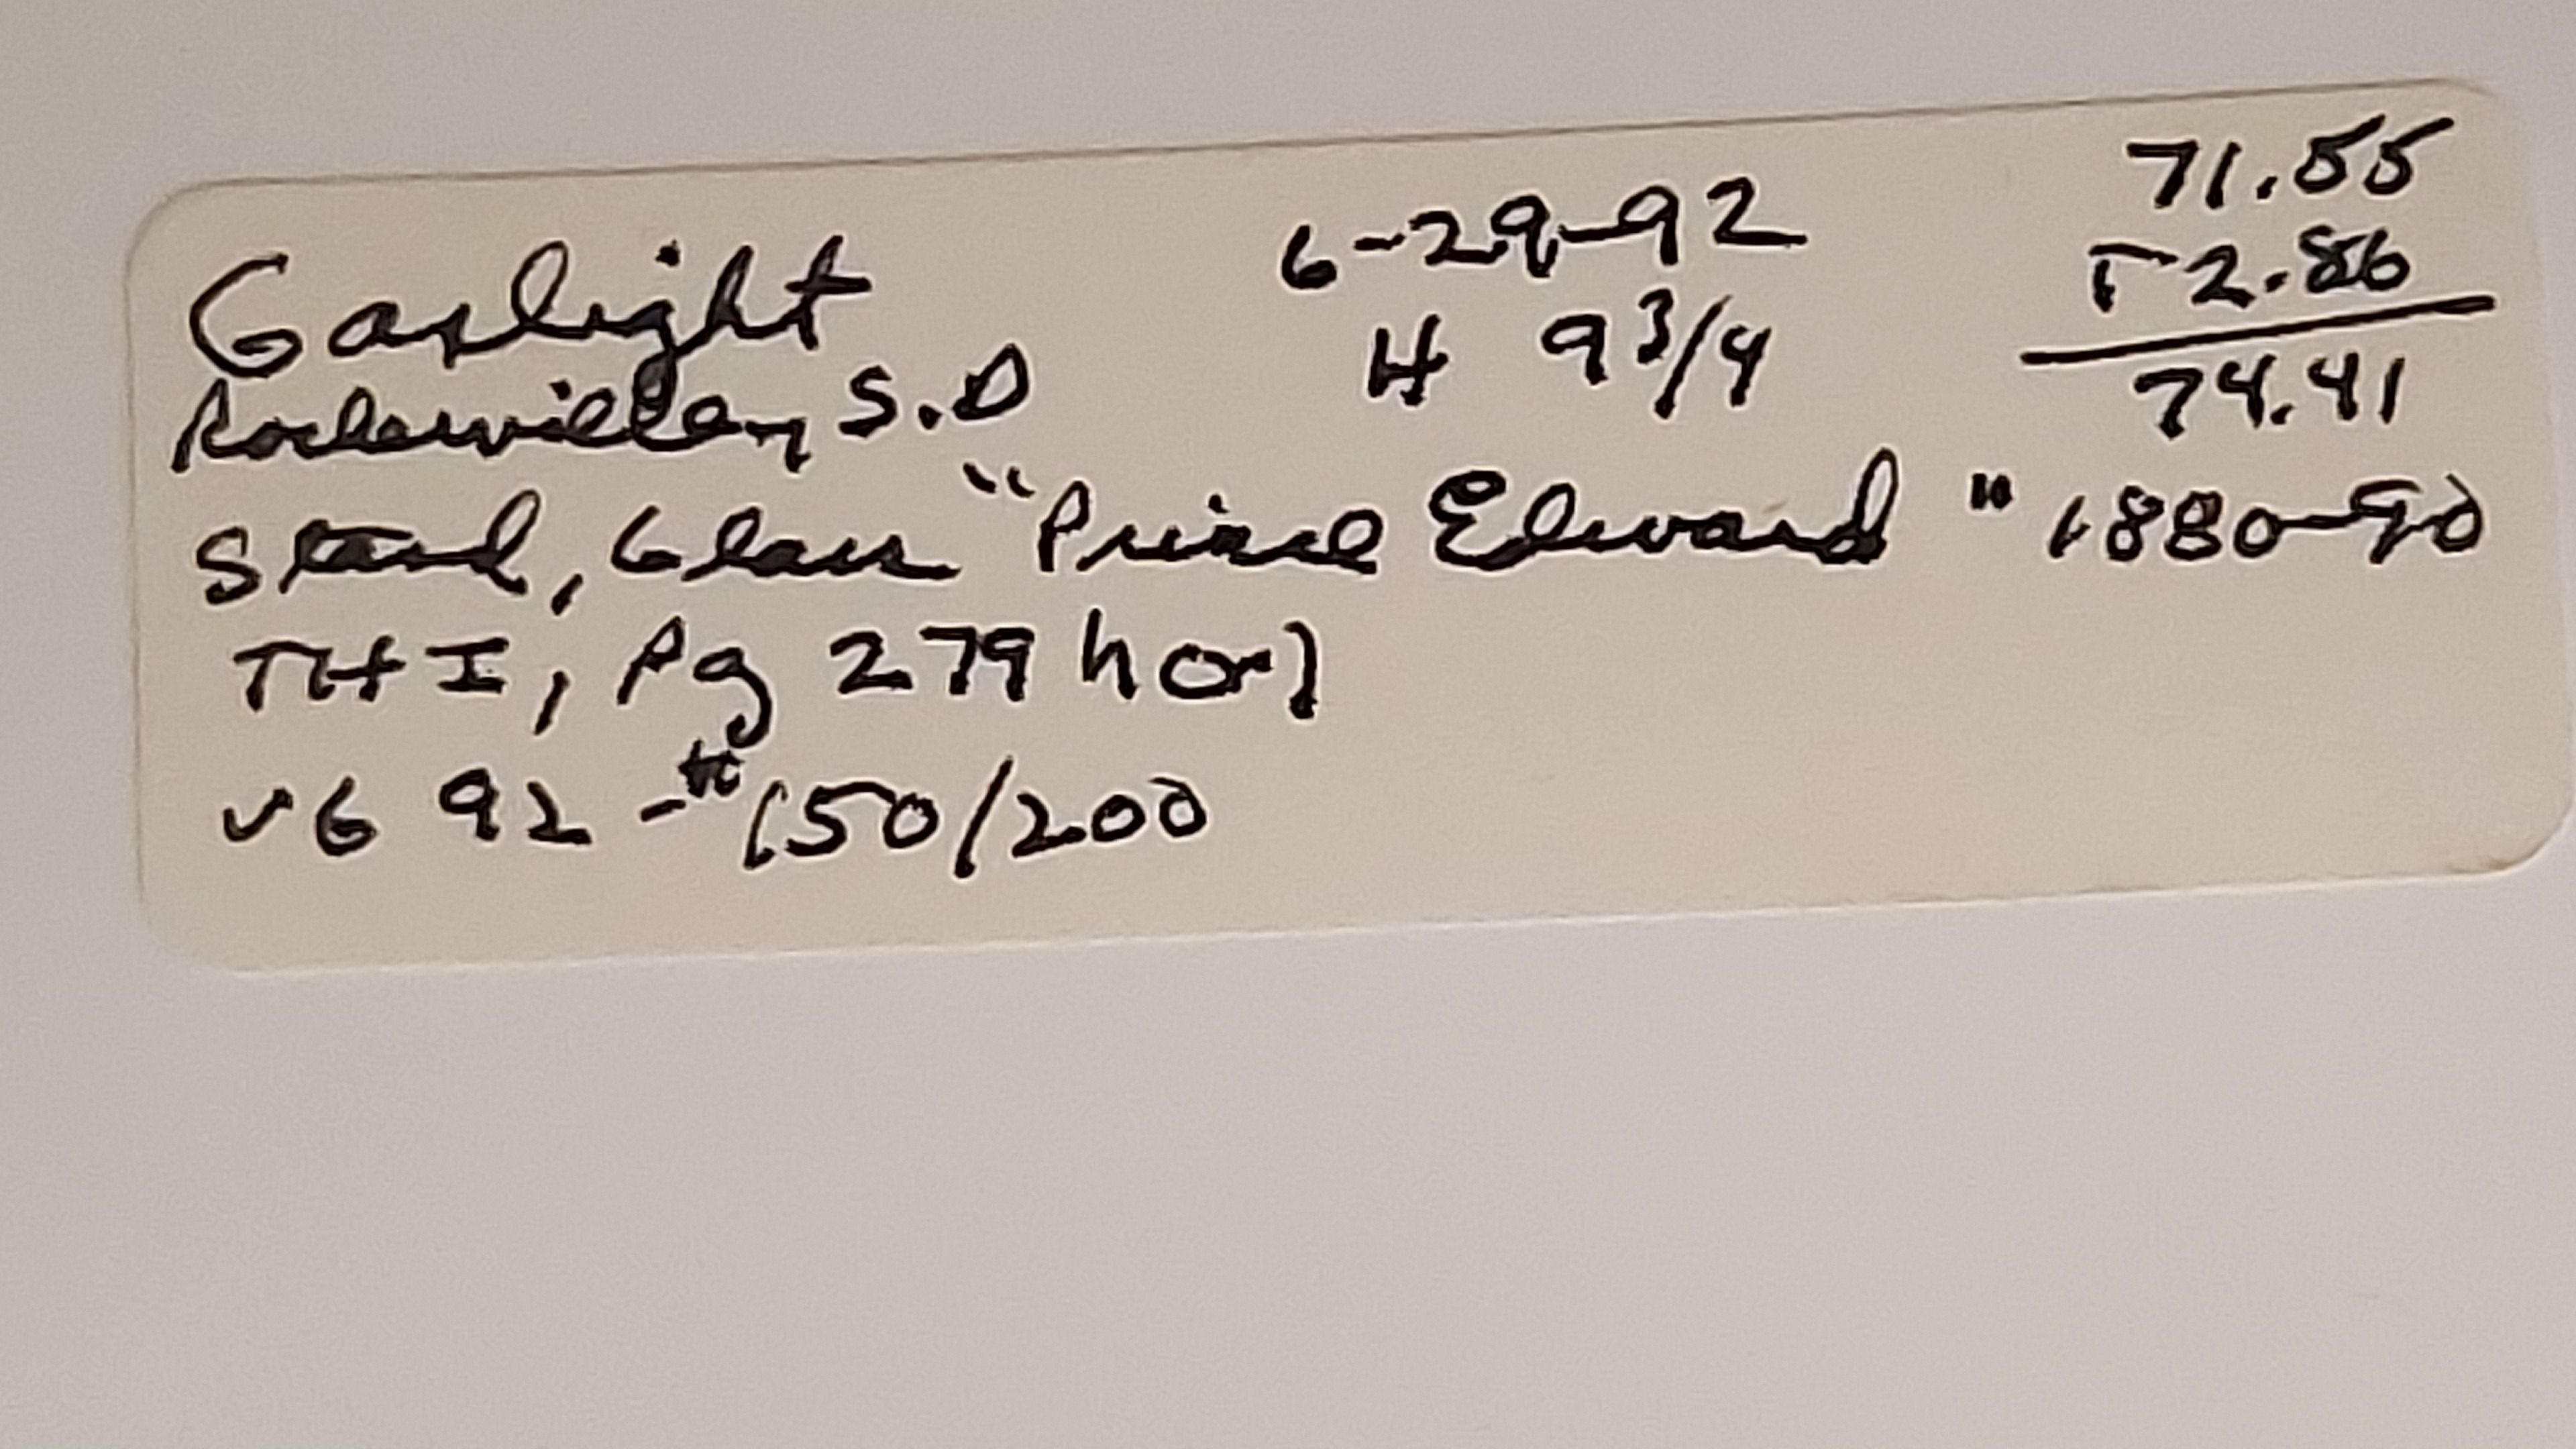 Gaslight 6-29-92 71.55
Rockerville, S.D H 9 3/4 T 2.86
74.41
Stand, Glass "Prince Edward" 1880-90
TH I, Pg 279 h or
VG 92 - $150/200